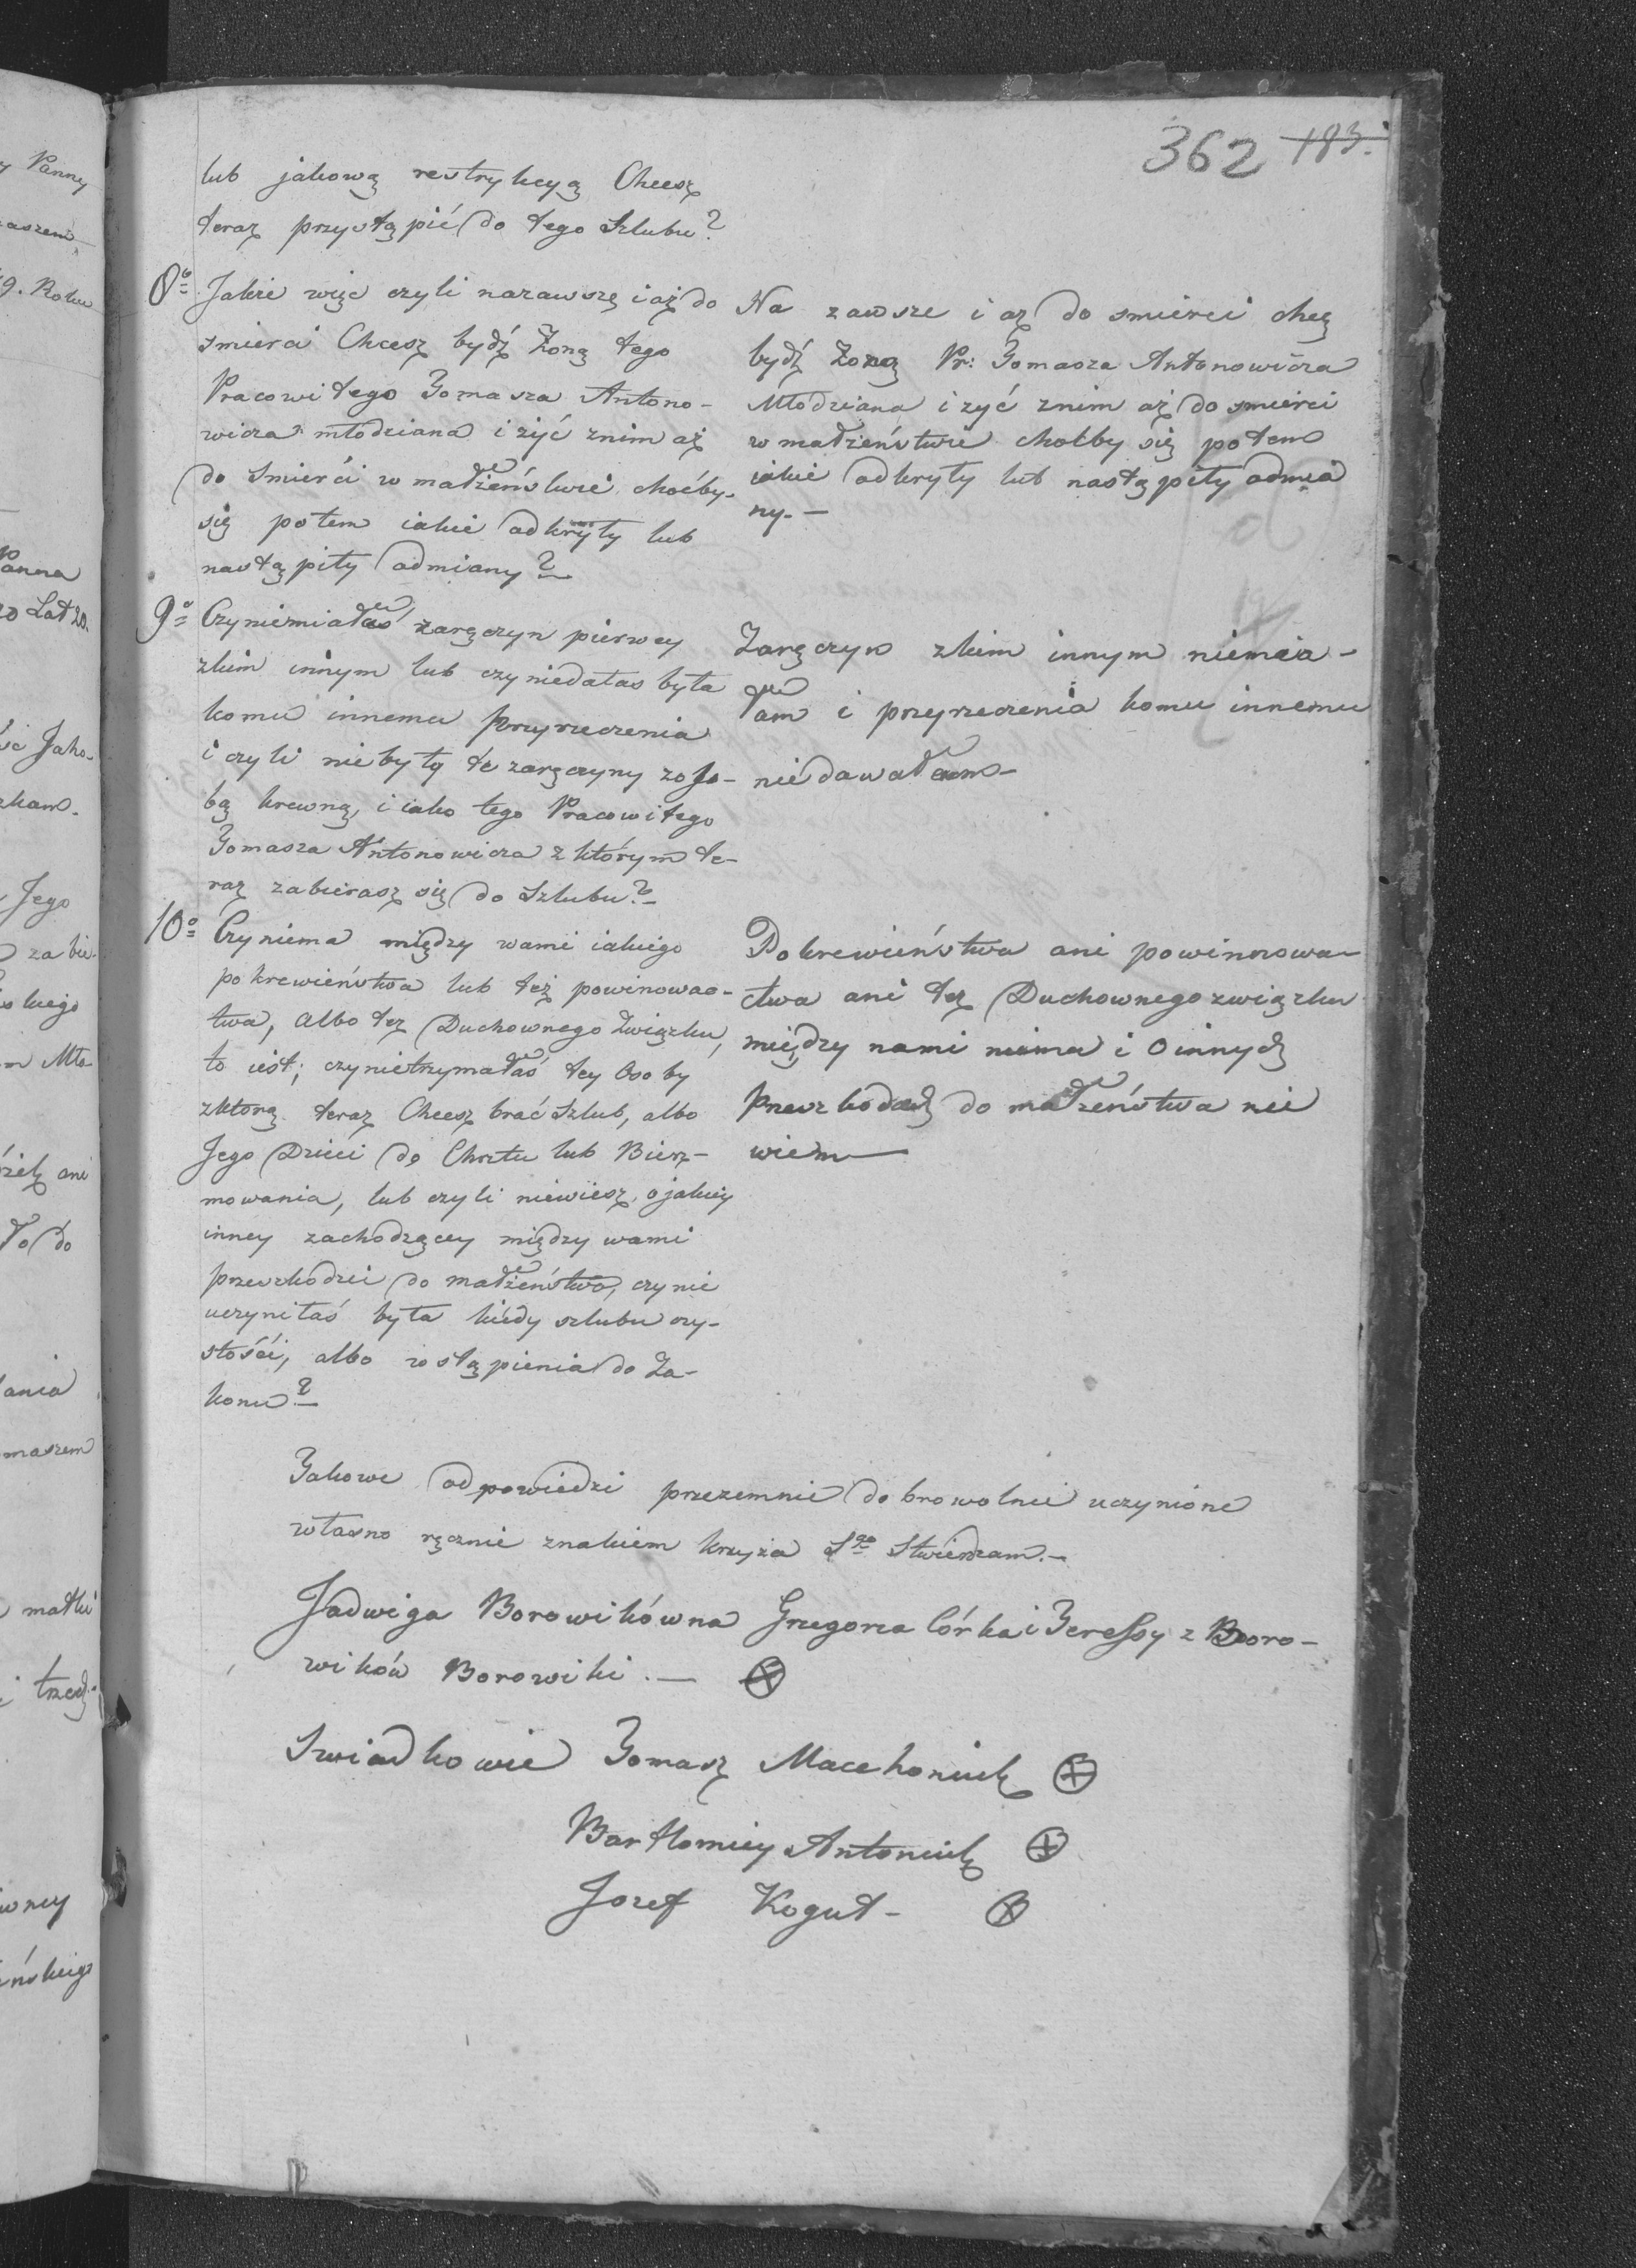 362 183.
lub jakową restrykcyą Chcesz
teraz przystąpić do tego Szlubu?
8o Jakże więc czyli nazawszę i aż do
smierci Chcesz bydź Zoną tego
Pracowitego Tomasza Antono-
wicza młodziana i żyć znim aż
do Smierći w małżeństwie choćby-
się potem iakie odkryły lub
nastąpiły odmiany?
Na zawsze i aż do smierci chcę
bydź Zoną Pr: Tomasza Antonowicza
Młodziana i zyć znim aż do smierci
w małżeństwie choćby się potem
iakie odkryły lub nastąpiły odmia
ny.-
9o Czyniemiałaś zaręczyn pierwey
zkim innym lub czyniedałas była
komu innemu przyrzeczenia
i czyli niebyły te zaręczyny zoso-
bą krewną, i iako tego Pracowitego
Tomasza Antonowicza z którym te-
raz zabierasz się do Szlubu?
Zaręczyn zkim innym niemia-
łam i przyrzeczenia komu innemu
niedawałam-
10o Czyniema między wami iakiego
pokrewieństwa lub też powinowac-
twa, albo tez Duchownego Związku,
to iest; czynietrzymałaś tey Osoby
zktorą teraz Chcesz brać Szlub, albo
Jego Dzieći do Chrztu lub Bierz-
mowania, lub czyli niewiesz, o jakiey
inney zachodzącey między wami
przeszkodzei do małżeństwa, czynie
uczyniłaś była kiedy szlubu czy-
stośći, albo wstąpienia do Za-
konu?
Pokrewieństwa ani powinnowa-
ctwa ani tez Duchownego związku
między nami niema i O innych
przeszkodach do małzeństwa nie
wiem
Takowe odpowiedzi przezemnie dobrowolnie uczynione
własno ręcznie znakiem krzyża Sgo Stwierdzam.-
Jadwiga Borowikówna Grzegorza Córka i Teressy z Boro-
wików Borowiki.-
Swiadkowie Tomasz Macekoniuk
Bartłomiey Antoniuk
Jozef Kogut-